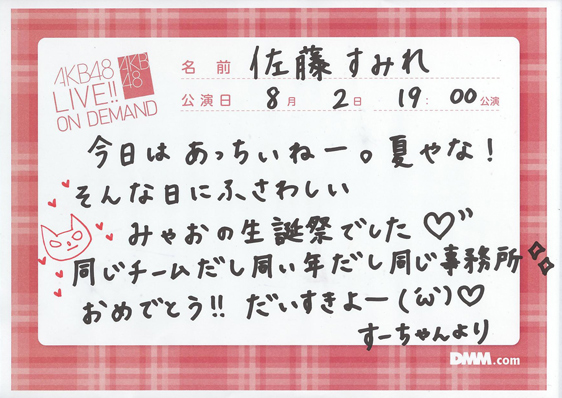 AKB48
LIVE!!
ON DEMAND
AKB
48
名前 佐藤すみれ
公演日 8月 2日 19:00公演
今日は あっちぃねー。夏やな!
そんな日にふさわしい
みゃおの生誕祭でした♡"
同じチームだし同い年だし同じ事務所
おめでとう!! だいすきよー(´ω`)♡
すーちゃんより
DMM.com